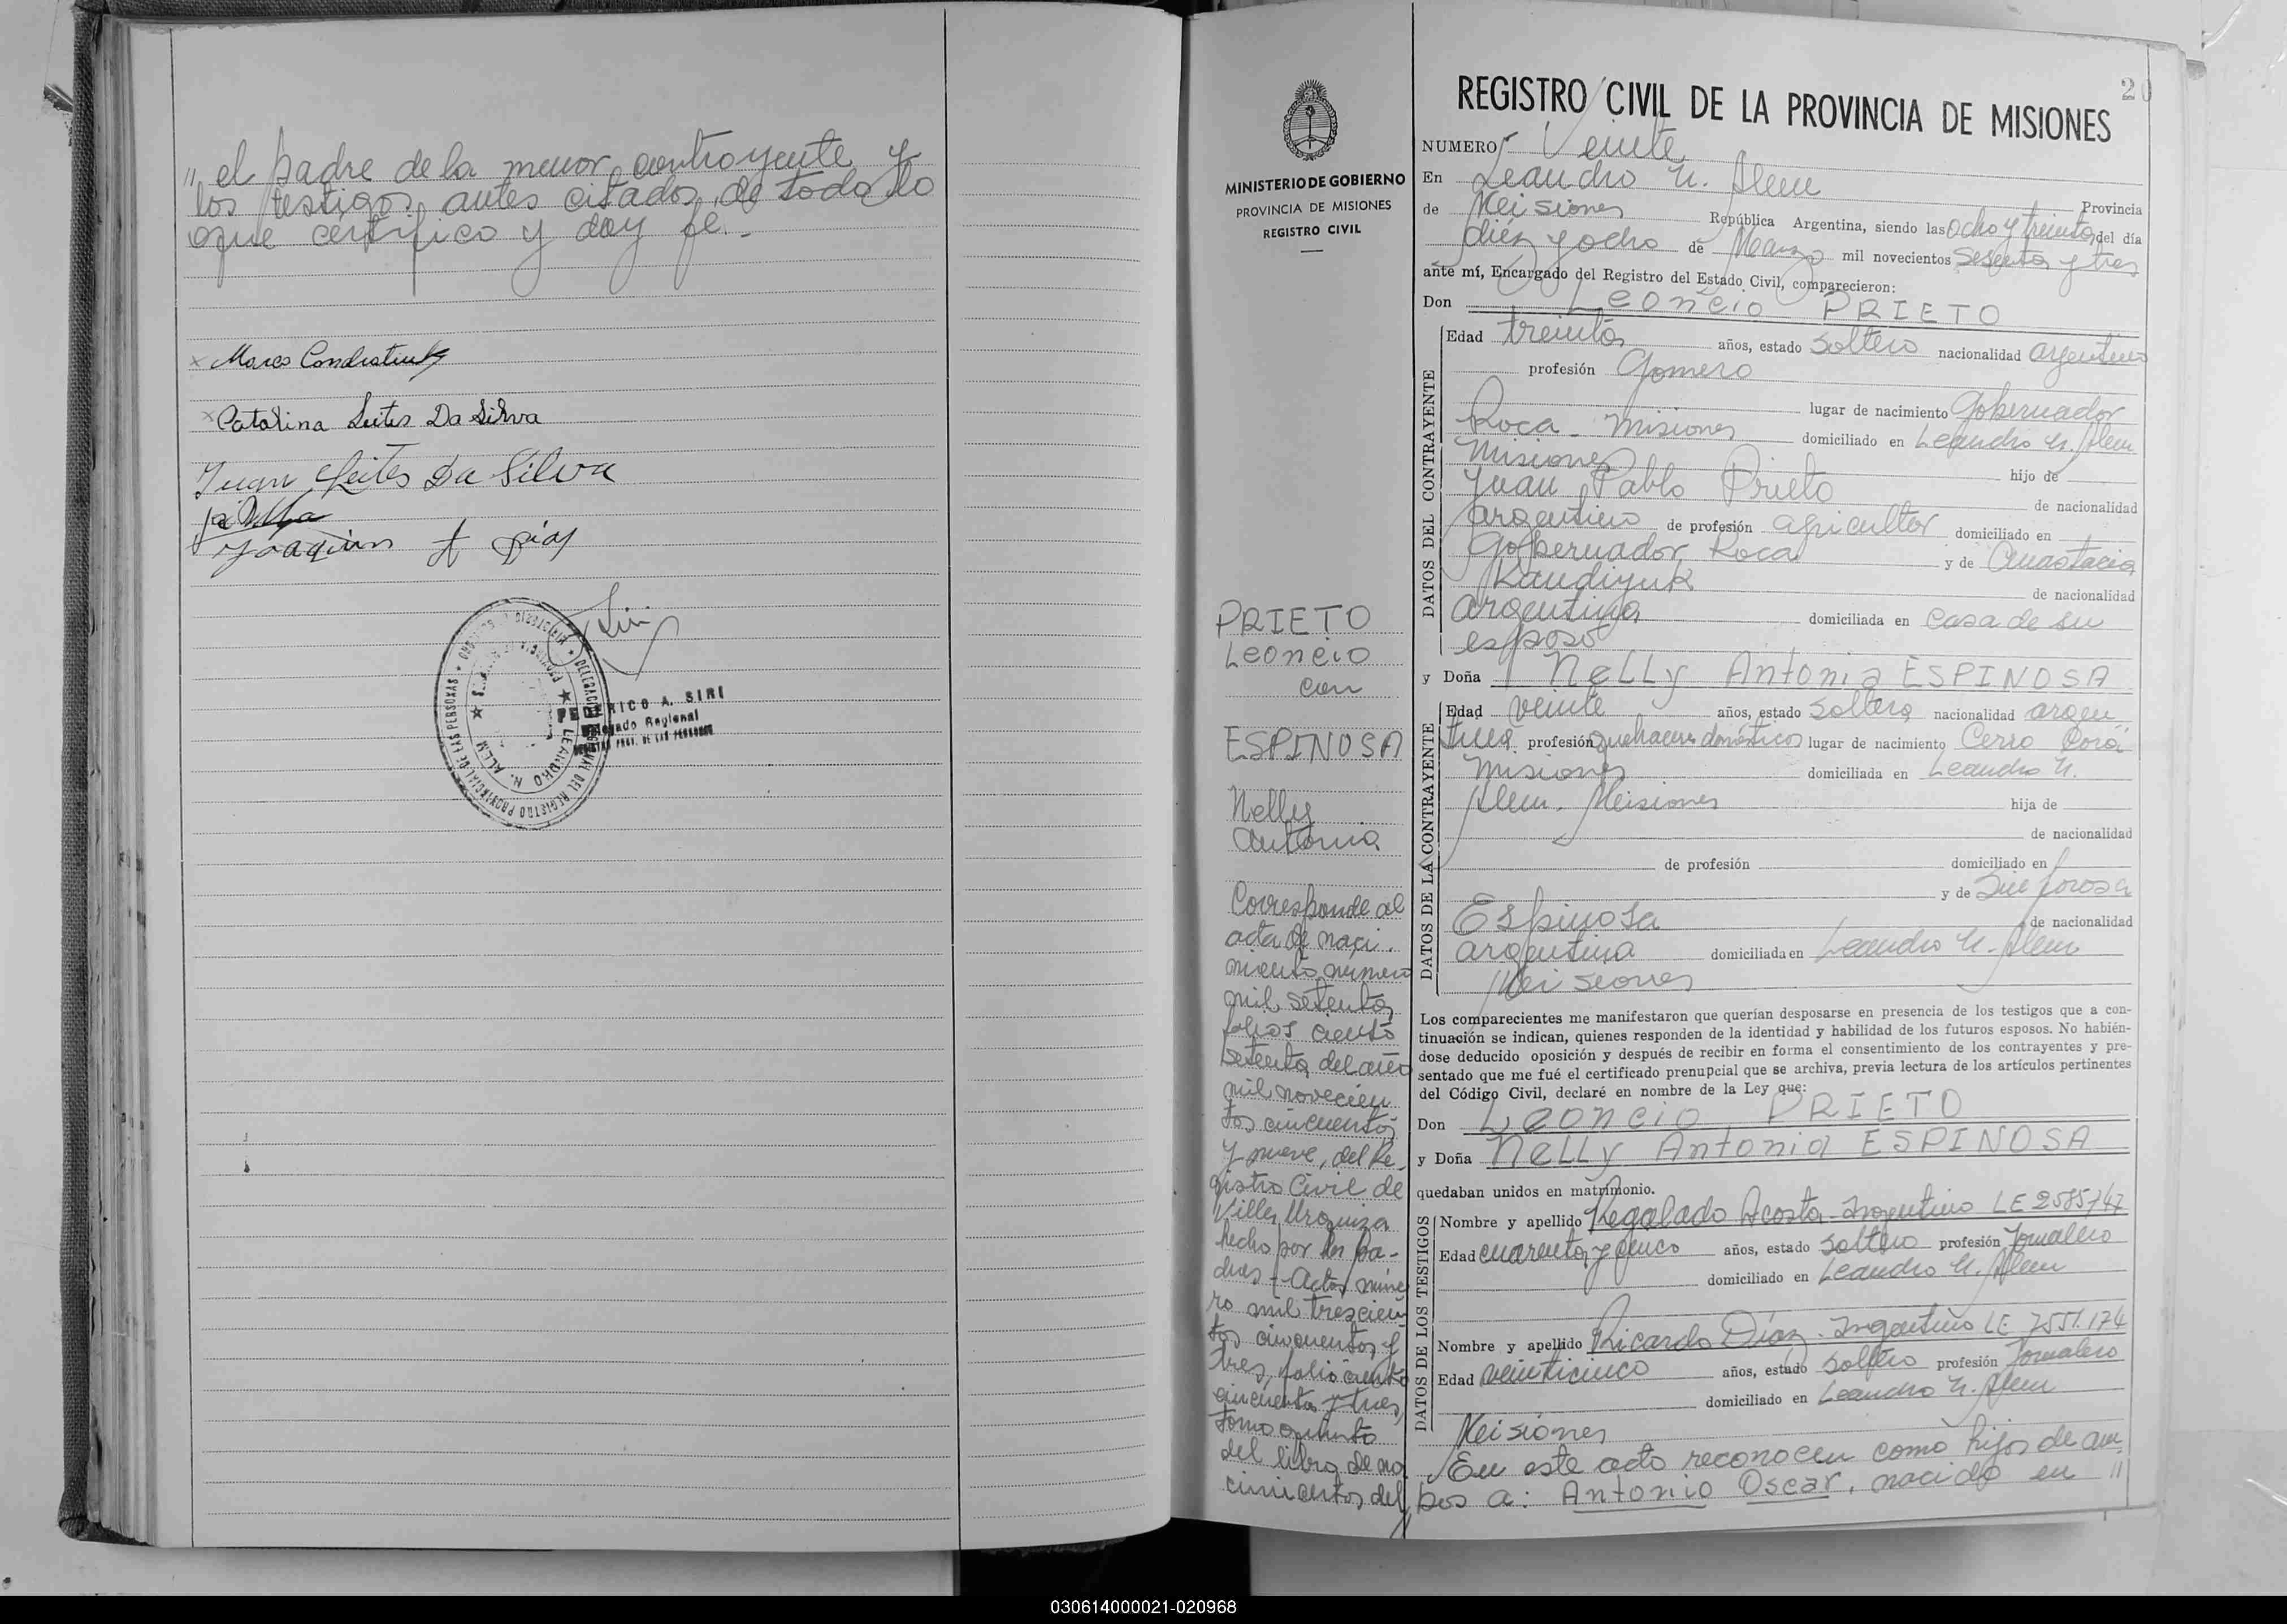 " el padre de la menor contrayente y
los testigos antes citados, de todo lo
que certifico y doy fe.-
x Marcos
x Catalina Leites Da Silva
Juan Leites Da Silva
Joaquin A Diaz
FEDERICO A. SIRI
Delegado Regional
REGISTRO PROV. DE LAS PERSONAS
LEANDRO N. ALEM
MINISTERIO DE GOBIERNO
PROVINCIA DE MISIONES
REGISTRO CIVIL
PRIETO
Leoncio
con
ESPINOSA
Nelly
Antonia
Corresponde al
acta de naci-
miento número
mil setenta,
folios ciento
setenta, del año
mil novecien
tos cincuenta
y nueve, del Re-
gistro Civil de
Villa Urquiza
hecho por los pa-
dres - Acta núme
ro mil trescien
tos cincuenta y
tres, folio ciento
cincuenta y tres,
tomo quinto
del libro de na
cimientos del
20
REGISTRO CIVIL DE LA PROVINCIA DE MISIONES
NUMERO Veinte
En Leandro N. Alem Provincia
de Misiones República Argentina, siendo las Ocho y treinta, del día
diez y ocho de Marzo mil novecientos Sesenta y tres
ante mí, Encargado del Registro del Estado Civil, comparecieron:
Don Leoncio PRIETO
DATOS DEL CONTRAYENTE
Edad treinta años, estado Soltero nacionalidad argentino
profesión Gomero
lugar de nacimiento Gobernador
Roca - Misiones domiciliado en Leandro N. Alem
Misiones hijo de
Juan Pablo Prieto de nacionalidad
argentino de profesión agricultor domiciliado en
Gobernador Roca y de Anastacia
Kandiyuk de nacionalidad
argentina domiciliada en casa de su
esposo
y Doña Nelly Antonia ESPINOSA
DATOS DE LA CONTRAYENTE
Edad veinte años, estado Soltera nacionalidad argen
tina profesión quehaceres domésticos lugar de nacimiento Cerro Corá
Misiones domiciliada en Leandro N.
Alem. Misiones hija de
de nacionalidad
de profesión domiciliado en
y de
Espinosa de nacionalidad
argentina domiciliada en Leandro N. Alem
Misiones
Los comparecientes me manifestaron que querían desposarse en presencia de los testigos que a con-
tinuación se indican, quienes responden de la identidad y habilidad de los futuros esposos. No habién-
dose deducido oposición y después de recibir en forma el consentimiento de los contrayentes y pre-
sentado que me fué el certificado prenupcial que se archiva, previa lectura de los artículos pertinentes
del Código Civil, declaré en nombre de la Ley que:
Don Leoncio PRIETO
y Doña Nelly Antonia ESPINOSA
quedaban unidos en matrimonio.
DATOS DE LOS TESTIGOS
Nombre y apellido Regalado Acosta - Argentino LE 2585747
Edad cuarenta y cinco años, estado Soltero profesión Jornalero
domiciliado en Leandro N. Alem
Nombre y apellido Ricardo Díaz. Argentino LE 7551.174
Edad veinticinco años, estado Soltero profesión Jornalero
domiciliado en Leandro N. Alem
Misiones
En este acto reconocen como hijos de am
bos a: Antonio Oscar, nacido en "
030614000021-020968